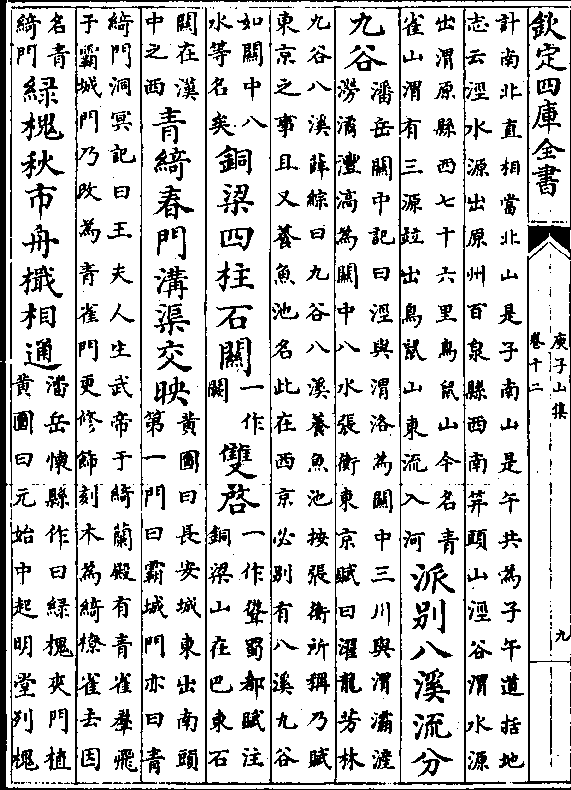 欽定四庫全書
庾子山集
卷十二
九
計南北直相當北山是子南山是午共為子午道括地
志云涇水源出原州百泉縣西南笄頭山涇谷渭水源
出渭原縣西七十六里鳥鼠山今名青
雀山渭有三源竝出鳥鼠山東流入河
派別八溪流分
九谷
潘岳關中記曰涇與渭洛為關中三川與渭灞滻
澇潏灃滈為關中八水張衡東京賦曰濯龍芳林
九谷八溪薛綜曰九谷八溪養魚池按張衡所稱乃賦
東京之事且又養魚池名此在西京必别有八溪九谷
如關中八
水等名矣
銅梁四柱石關
一作
闕
雙啓
一作聳蜀都賦注
銅梁山在巴東石
關在漢
中之西
青綺春門溝渠交映
黄圖曰長安城東出南頭
第一門曰霸城門亦曰青
綺門洞冥記曰王夫人生武帝于綺蘭殿有青雀羣飛
子霸城門乃改為青雀門更修飾刻木為綺橑雀去因
名青
綺門
綠槐秋市舟檝相通
潘岳懷縣作曰綠槐夾門植
黄圖曰元始中起明堂列槐